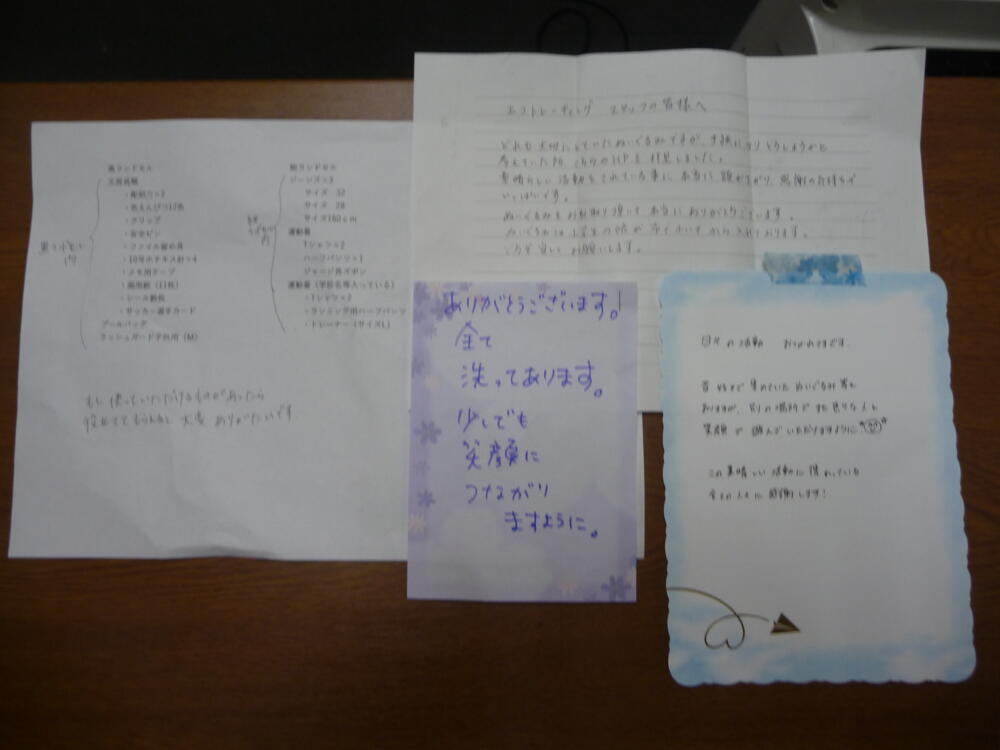 黒ランドセル
文房具類
・彫刻刀×2
・色えんぴつ12色
・クリップ
・安全ピン
・ファイル留め具
・10号ホチキス針×4
・メモ用テープ
・画用紙（11枚）
・シール数枚
・サッカー選手カード
プールバッグ
ラッシュガード子供用（M）
黒ランドセル
内
紺ランドセル
ジーンズ×3
サイズ 32
サイズ 28
サイズ160cm
運動着
Tシャツ×2
ハーフパンツ×1
ジャージ長ズボン
運動着（学校名等入っている）
・Tシャツ×2
・ランニング用ハーフパンツ
・トレーナー（サイズL）
内
もし使っていただけるものがあったら
役立ててもらえると大変ありがたいです。
エコトレーディング スタッフの皆様へ
どれも大切にしていたぬいぐるみですが、手狭になりどうしようかと
考えていた所、こちらのHPを拝見しました。
素晴らしい活動をされている事に本当に頭が下がり、感謝の気持ちで
いっぱいです。
ぬいぐるみをお引取り頂いて本当にありがとうございます。
どうぞ宜しくお願いします。
ありがとうございます!
全て
洗ってあります。
少しでも
笑顔に
つながり
ますように。
日々の活動 おつかれさまです。
昔好きで集めていたぬいぐるみ等も
ありますが、別の場所で色々な人と
笑顔で遊んでいただけますように
この素晴しい活動に携わっている
全ての人々に感謝します!